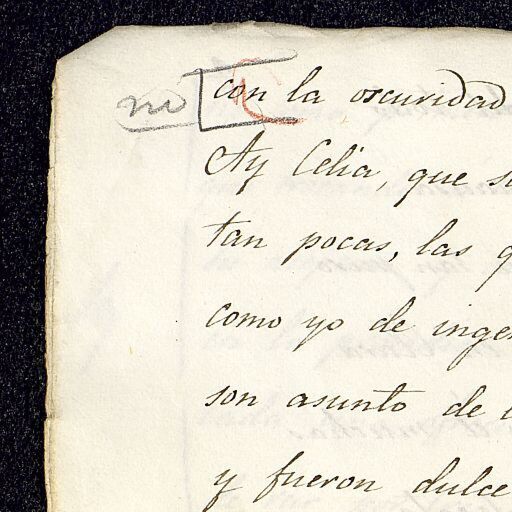 no con la oscuridad
Ay Celia, que
tan pocas, las
como yo de
son asunto de
y fueron dulce